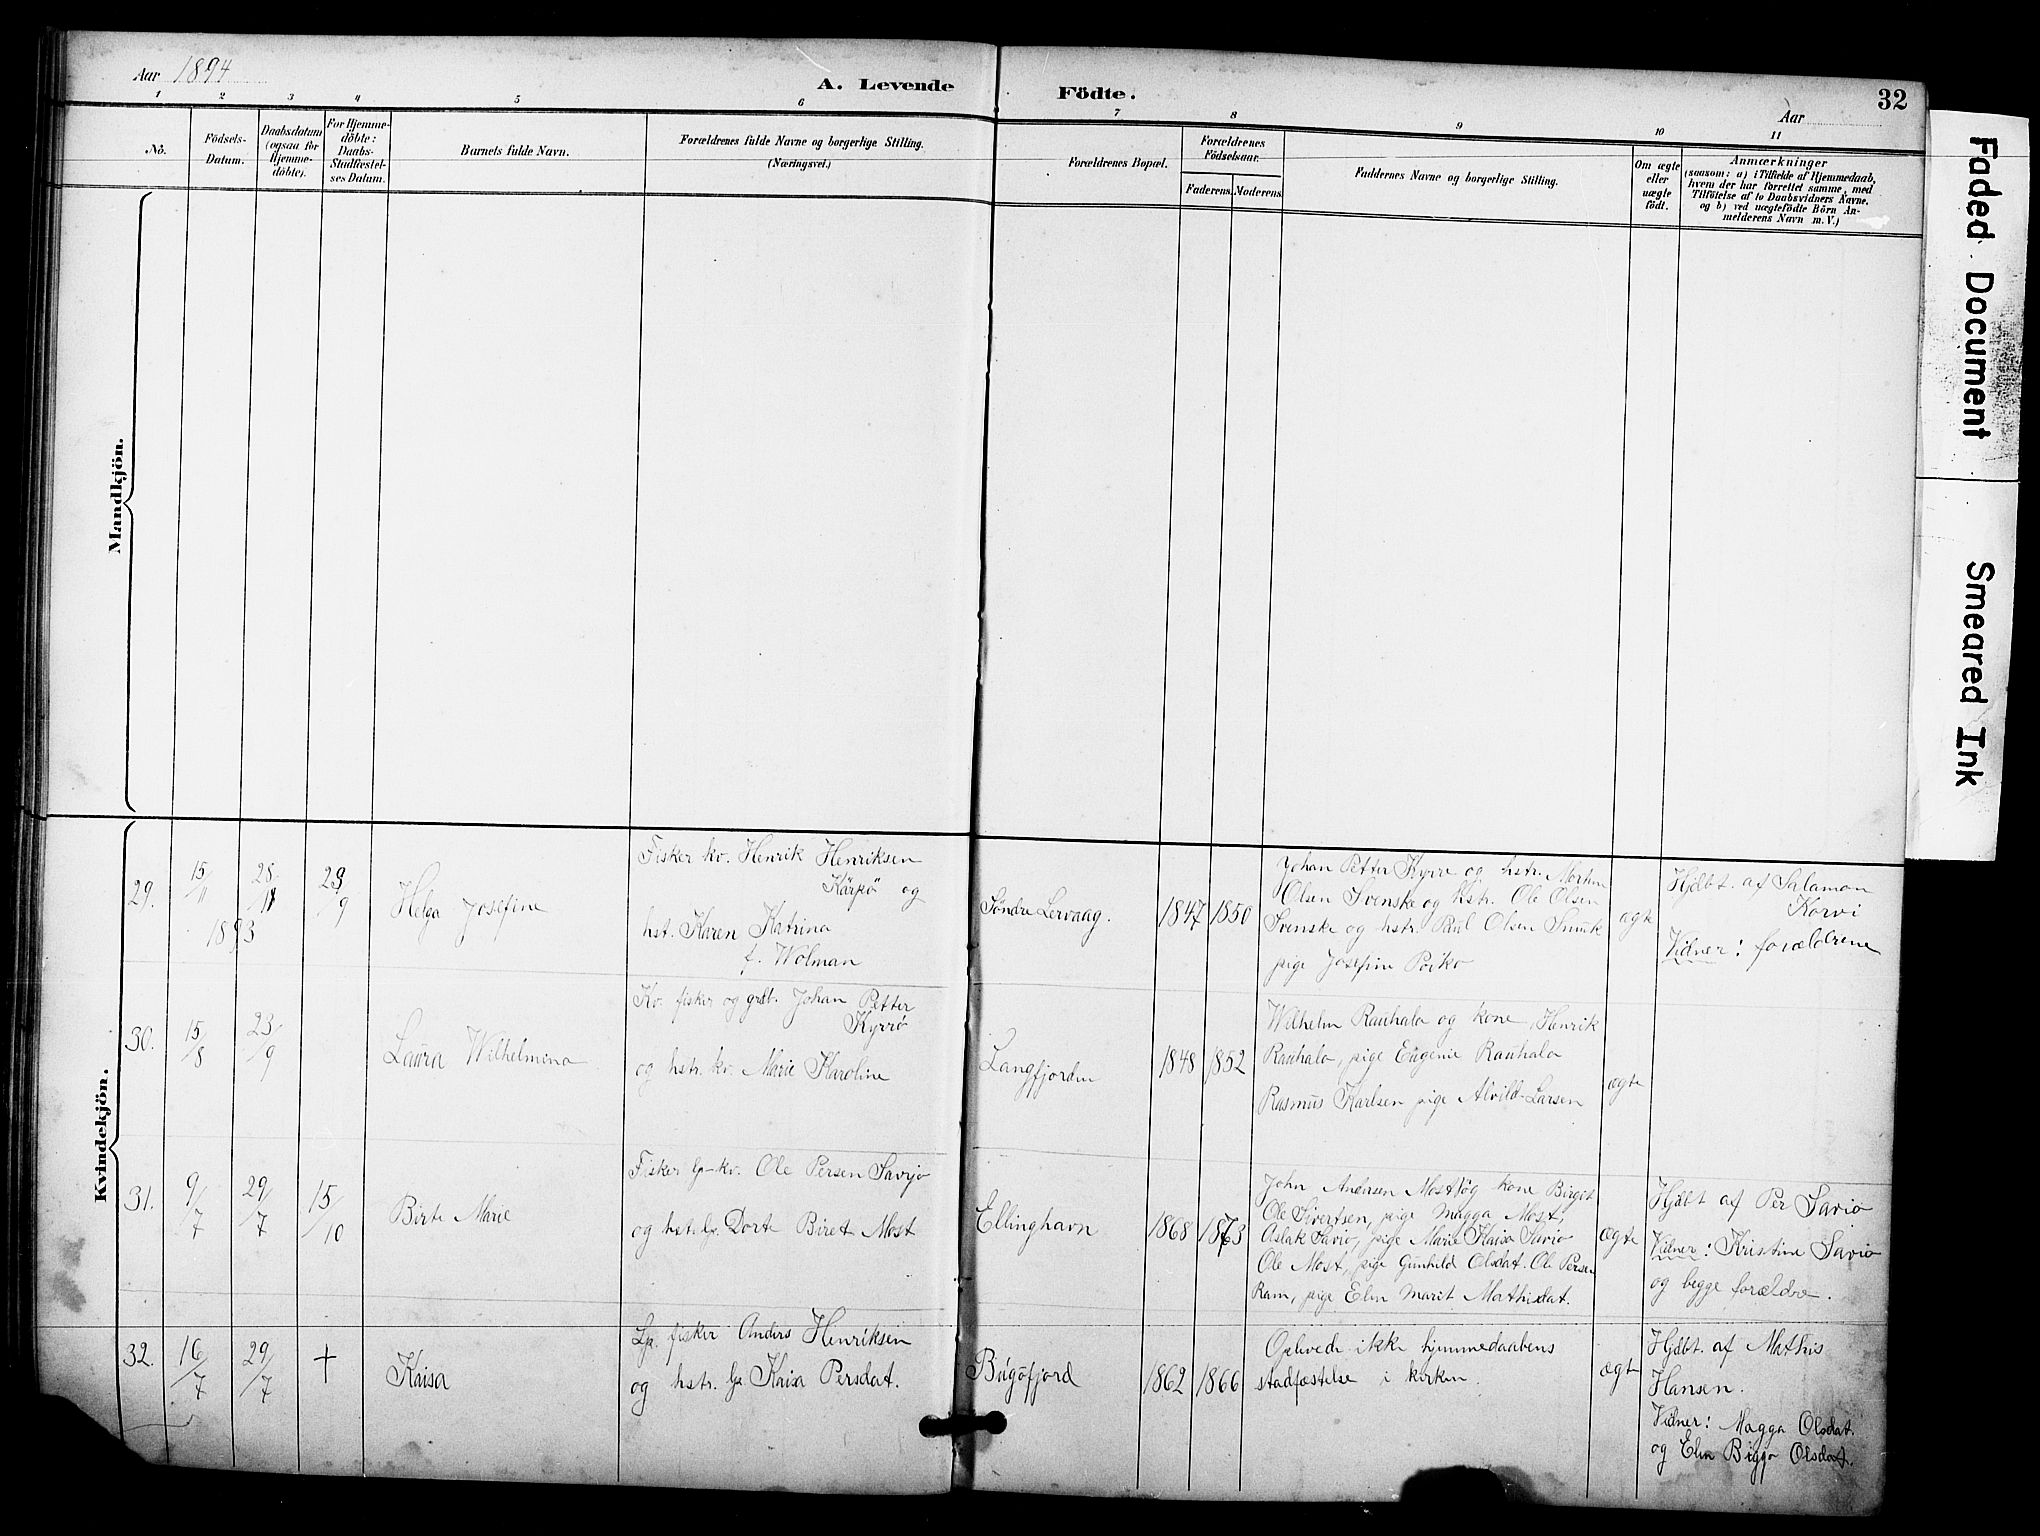 Aar 1894
A. Levende Födte.
Aar
32
1 2 3 4 5 6 7 8 9 10 11
No.
Födsels-Datum.
Daabsdatum (ogsaa for Hjemme-döbte).
For Hjemme-döbte: Daabs-Stadfæstel-ses Datum.
Barnets fulde Navn.
Forældrenes fulde Navne og borgerlige Stilling.
(Næringsvei.)
Forældrenes Bopæl.
Forældrenes Födselsaar.
Faderens. Moderens.
Faddernes Navne og borgerlige Stilling.
Om ægte eller uægte født.
Anmærkninger
(saasom: a) i Tilfælde af Hjemmedaab,
hvem der har forrettet samme, med
Tilföielse af to Daabsvidners Navne,
og b) ved uægtefödte Börn An-
melderens Navn m. V.)
Mandkjön.
Kvindekjön.
29.
15/11 1893
28/11
23/9
Helga Josefine
Fisker kv. Henrik Henriksen
Kärpö og
hst. Karen Katrina
f. Wolman
Söndre Lervaag.
1847
1850
Johan Petter Kyrre og hstr. Morten
Olsen Svenske og hstr. Ole Olsen
Svenske og hstr. Paul Olsen Smuk
pige Josefine Poiko
ægte
Hjdbt. af Salamon
Korvi
Vidner: forældrene
30.
15/8
23/9
Laura Wilhelmina
Kv. fisker og grdb. Johan Petter
Kyrrö
og hstr. kv. Marie Karoline
Langfjorden
1848
1852
Wilhelm Rauhala og kone, Henrik
Rauhala, pige Eugenie Rauhala
Rasmus Karlsen pige Alvild Larsen
ægte
31.
9/7
29/7
15/10
Birte Marie
Fisker lp-kv. Ole Persen Savjo
og hstr. lp. Dorte Biret Most
Ellinghavn
1868
1873
John Andersen Most og kone Birgit
Ole Sivertsen, pige Magga Most,
Aslak Savio, pige Marie Kaisa Savio
Ole Most, pige Gunhild Olsdat. Ole Persen
Ram, pige Elen Marit Mathisdat.
ægte
Hjdbt af Per Savio
Vidner: Kristine Savio
og begge forældre.
32.
16/7
29/7
+
Kaisa
Lp. fisker Anders Henriksen
og hstr. lp Kaisa Persdat.
Bugöfjord
1862
1866
Oplevede ikke hjemmedaabens
stadfæstelse i kirken.
ægte
Hjdbt. af Mathis
Hansen.
Vidner: Magga Olsdat.
og Elen Bigga Olsdat.
Faded Document
Smeared Ink